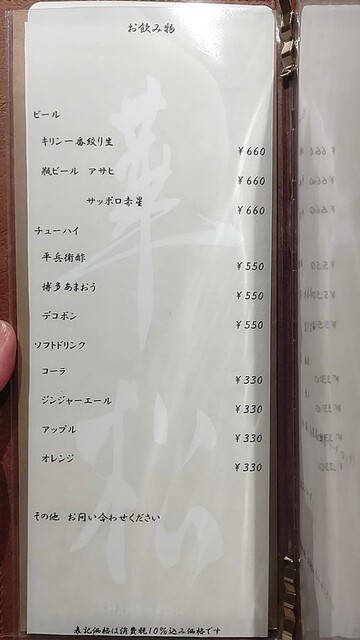 お飲み物
ビール
キリン一番絞り生 ¥660
瓶ビール アサヒ ¥660
サッポロ赤星 ¥660
チューハイ
平兵衛酢 ¥550
博多あまおう ¥550
デコポン ¥550
ソフトドリンク
コーラ ¥330
ジンジャーエール ¥330
アップル ¥330
オレンジ ¥330
その他 お問い合わせください
表記価格は消費税10%込み価格です
華
松